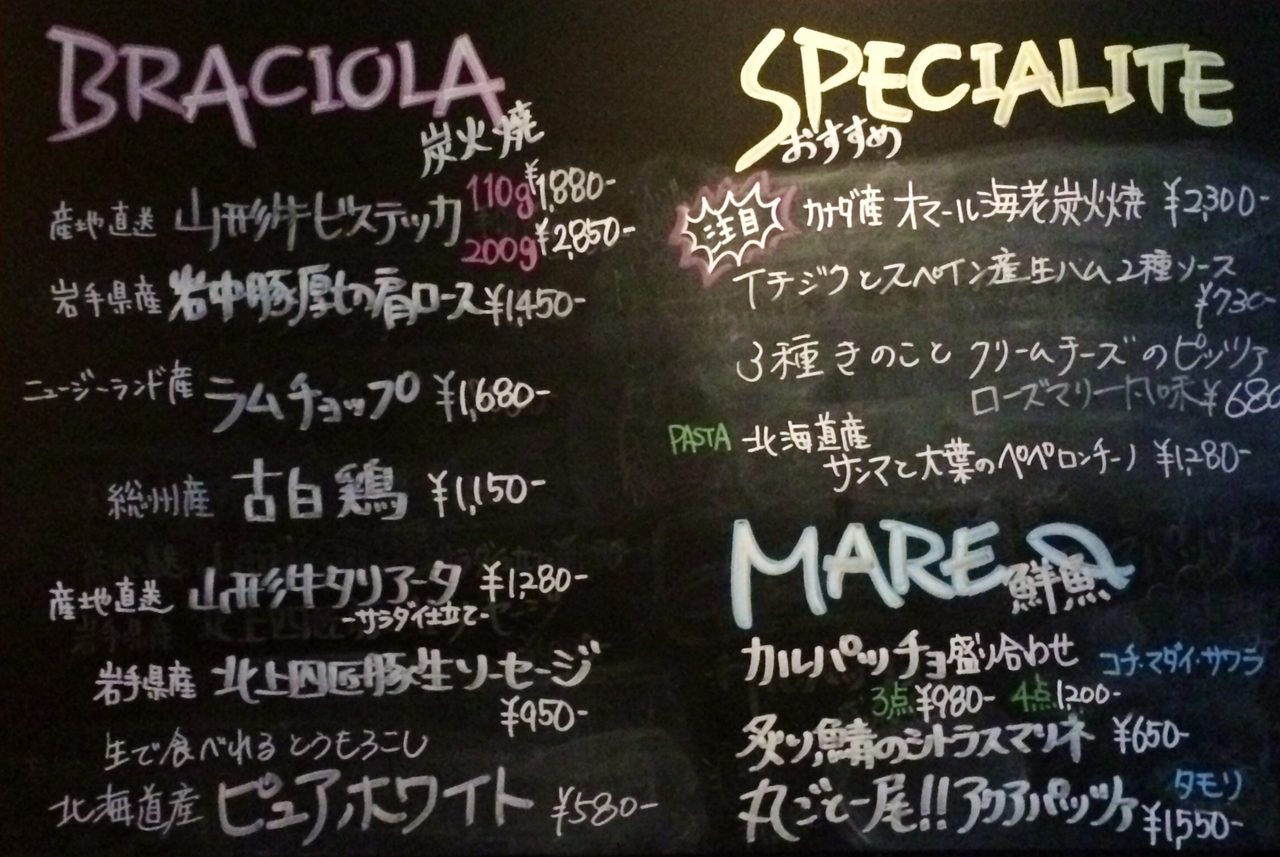 BRACIOLA
炭火焼
産地直送 山形牛ビステッカ 110g ¥1,880-
200g ¥2,850-
岩手県産 岩中豚厚切肩ロース ¥1,450-
ニュージーランド産 ラムチョップ ¥1,680-
総州産 古白鶏 ¥1,150-
産地直送 山形牛タリアータ ¥1,280-
-サラダ仕立て-
岩手県産 北上四匠豚生ソーセージ
¥950-
生で食べれるとうもろこし
北海道産 ピュアホワイト ¥580-
SPECIALITE
おすすめ
注目 カナダ産 オマール海老炭火焼 ¥2,300-
イチジクとスペイン産生ハム2種ソース
¥730-
3種きのことクリームチーズのピッツァ
ローズマリー風味 ¥680
PASTA 北海道産
サンマと大葉のペペロンチーノ ¥1,280-
MARE
鮮魚
カルパッチョ盛り合わせ コチ・マダイ・サワラ
3点 ¥980- 4点 1,200-
炙り鯖のシトラスマリネ ¥650-
丸ごと一尾!!アクアパッツァ タモリ ¥1,550-